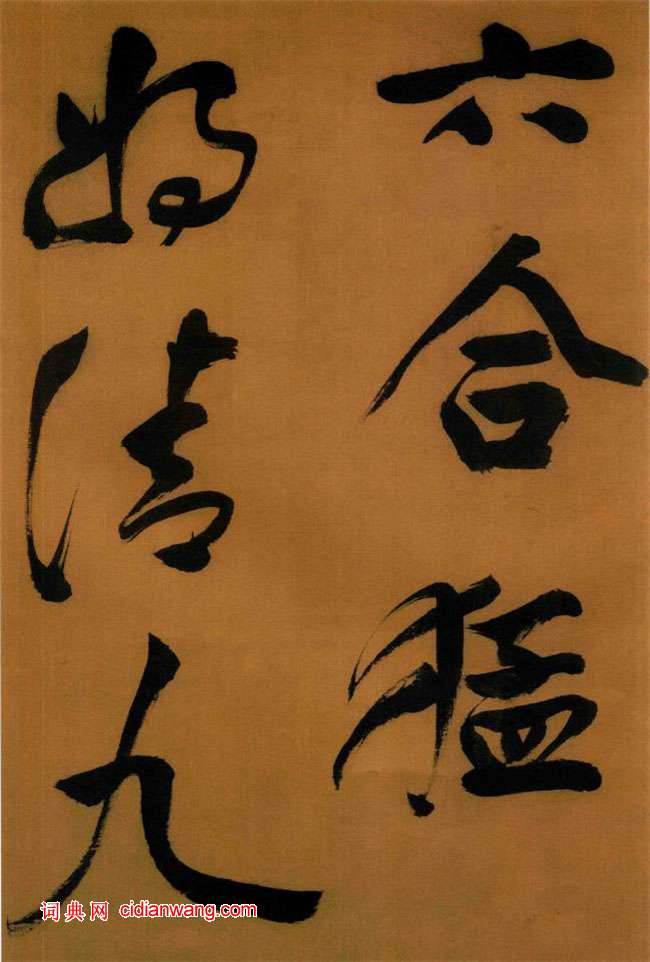 六合猛
將清九
词典网 cidianwang.com